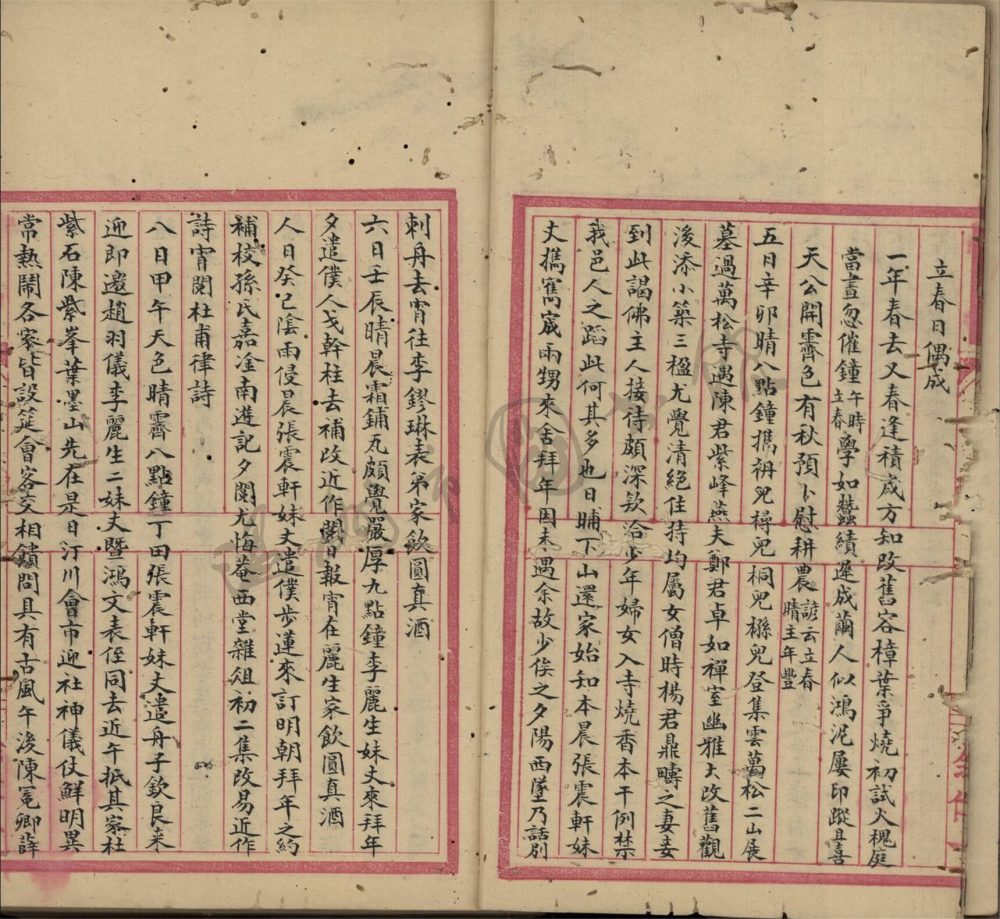 立春日偶成
一年春去又春逢積歲方知改舊容樟葉爭燒初試火槐庭
當晝忽催鐘午時立春學如蠶績遲成繭人似鴻泥屢印蹤且喜
天公開霽色有秋預卜慰耕農諺云立春晴主年豐
五日辛卯晴八點鐘攜枬兒樳兒桐兒櫾兒登集雲萬松二山展
墓過萬松寺遇陳君紫峰燕夫鄭君卓如禪室幽雅大改舊觀
後添小築三楹尤覺清絕住持均屬女僧時楊君鼎疇之妻妾
到此謁佛主人接待頗深欵洽少年婦女入寺燒香本干例禁
我邑人之蹈此何其多也日晡下山還家始知本晨張震軒妹
丈攜寯宬兩甥來舍拜年因未遇余故少俟之夕陽西墜乃話別
刺舟去宵往李鏐琳表弟家飲圓真酒
六日壬辰晴晨霜鋪瓦頗覺嚴厚九點鐘李麗生妹丈來拜年
夕遣僕人戈幹柱去補改近作閱日報宵在麗生家飲圓真酒
人日癸巳陰雨侵晨張震軒妹丈遣僕步蓮來訂明朝拜年之約
補校孫氏嘉淦南遊記夕閱尤悔菴西堂雜俎初二集改易近作
詩宵閱杜甫律詩
八日甲午天色晴霽八點鐘丁田張震軒妹丈遣舟子欽良來
迎即邀趙羽儀李麗生二妹丈暨鴻文表侄同去近午抵其家杜
紫石陳紫峯葉墨山先在是日汀川會市迎社神儀仗鮮明異
常熱鬧各家皆設筵會客交相饋問具有古風午後陳冕卿薛